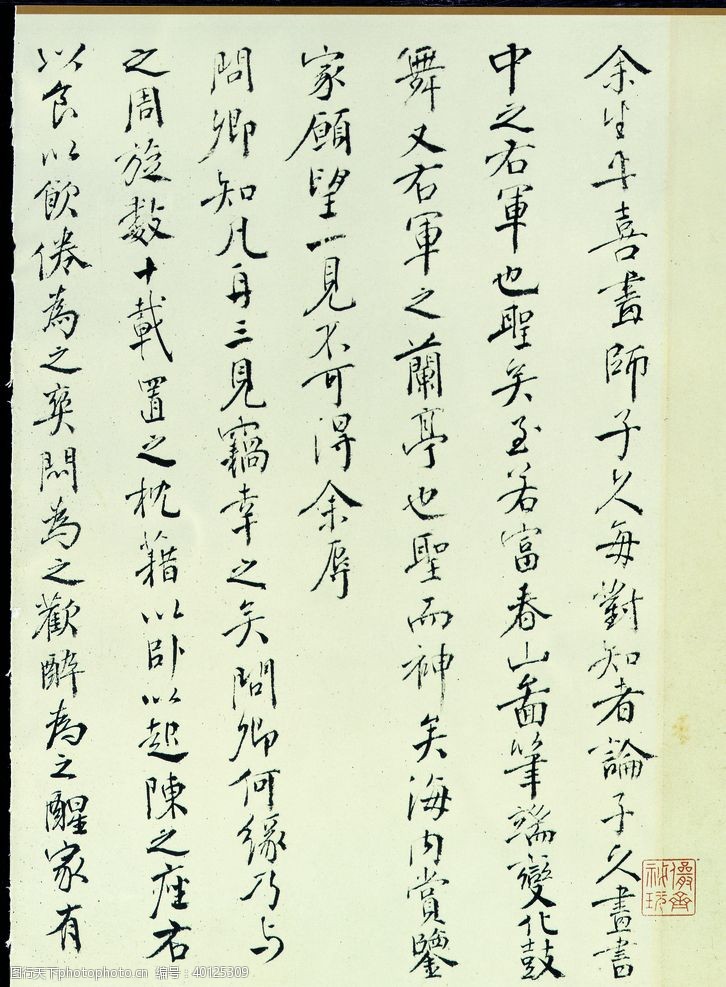 余生平喜畫師子久每對知者論子久畫書
中之右軍也聖矣至若富春山圖筆端變化鼓
舞又右軍之蘭亭也聖而神矣海內賞鑒
家願望一見不可得余辱
問卿知凡再三見竊幸之矣問卿何緣乃与
之周旋數十載置之枕藉以臥以起陳之座右
以食以飲倦為之爽悶為之歡醉為之醒家有
儼齋
秘玩
图行天下photophoto.cn 编号：40125309